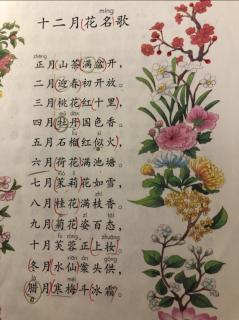 míng
十二月花名歌
zhēng
正月山茶满盆开，
二月迎春初开放。
三月桃花红十里，
mǔ dān
四月牡丹国色香。
五月石榴红似火，
六月荷花满池塘。
mò lì
七月茉莉花如雪，
八月桂花满枝香。
zī
九月菊花姿百态，
fú róng zhuāng
十月芙蓉正上妆。
冬月水仙案头供，
là
腊月寒梅斗冰霜。